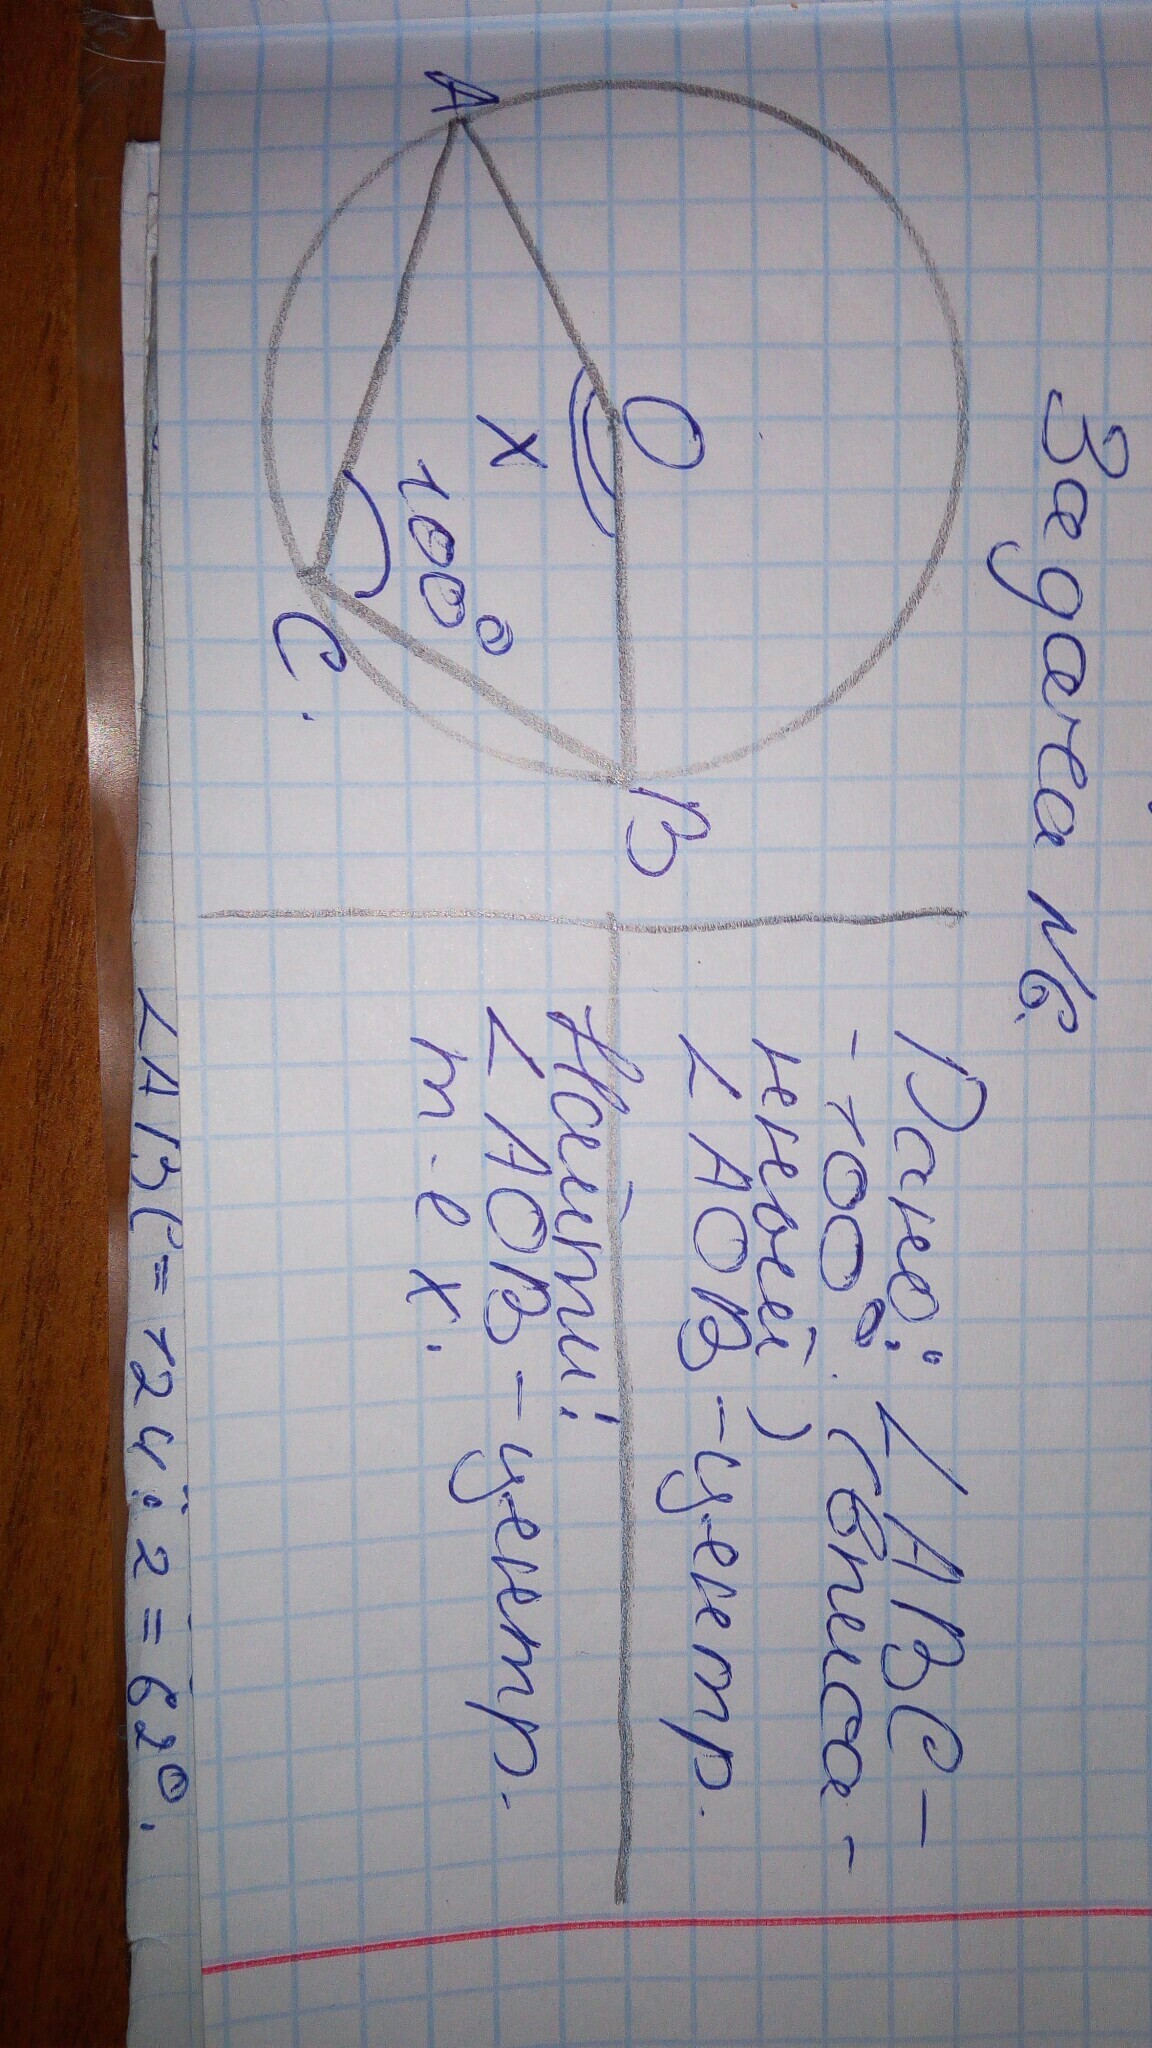 Задача №6.
A
O
B
x
100°
C.
Дано: ∠ABC -
- 100°. (вписа -
нный)
∠AOB - центр.
Найти:
∠AOB - центр.
т.е x.
∠ABC = 124:2 = 62°.